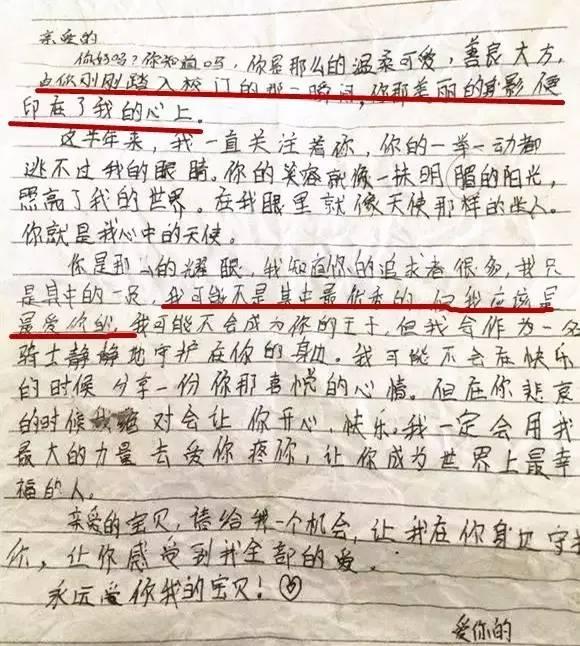 亲爱的
你好吗？你知道吗，你是那么的温柔可爱，善良大方，
当你刚刚踏入校门的那一瞬间，你那美丽的身影便
印在了我的心上。
这半年来，我一直关注着你，你的一举一动都
逃不过我的眼睛。你的笑容就像一抹明媚的阳光，
照亮了我的世界。在我眼里就像天使那样的坐人。
你就是我心中的天使。
你是那么的耀眼，我知道你的追求者很多，我只
是其中的一员，我可能不是其中最优秀的，但我应该是
最爱你的，我可能不会成为你的王子，但我会作为一名
骑士静静地守护在你的身边。我可能不会在快乐
的时候分享一份你那喜悦的心情。但在你悲哀
的时候我绝对会让你开心，快乐。我一定会用我
最大的力量去爱你疼你，让你成为世界上最幸
福的人。
亲爱的宝贝，请给我一个机会，让我在你身边守
你，让你感受到我全部的爱。
永远爱你我的宝贝！
爱你的